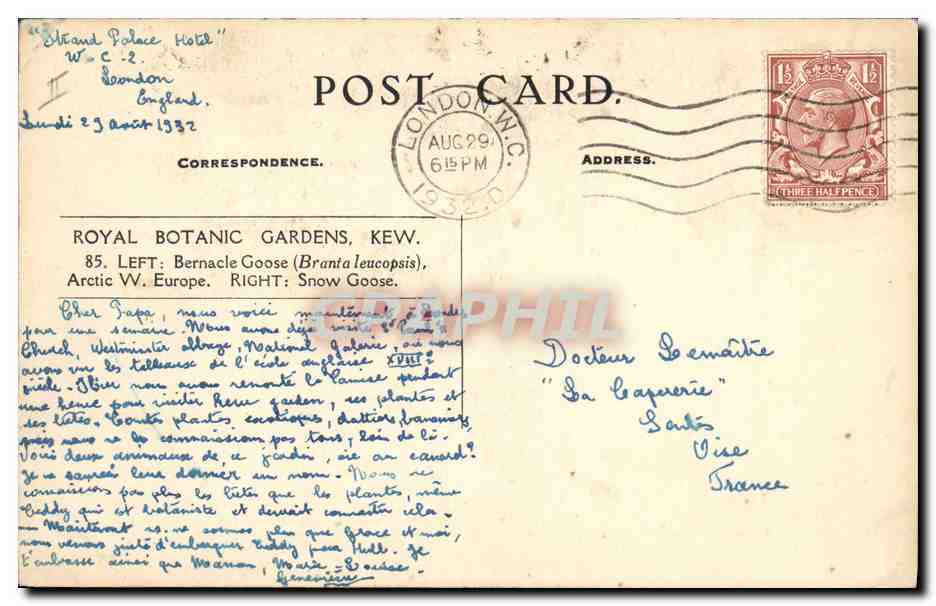 "Strand Palace Hotel"
W.C.2.
London
England.
Lundi 29 août 1932
POST CARD.
LONDON.W.C.
AUG 29
6 15 PM
1932.D
1½ 1½
THREE HALFPENCE
CORRESPONDENCE.
ADDRESS.
ROYAL BOTANIC GARDENS, KEW.
85. LEFT: Bernacle Goose (Branta leucopsis),
Arctic W. Europe. RIGHT: Snow Goose.
CPAPHIL
Cher Papa, nous voici maintenant à Londres
pour une semaine. Nous avons déjà visité St Paul's
Church, Westminster abbaye, National galerie, où nous
avons vu les tableaux de l'école anglaise XVIIIe
siècle. Hier nous avons remonté la Tamise pendant
une heure pour visiter Kew garden, ses plantes et
ses bêtes. Toutes plantes exotiques, dattiers, bananiers,
mais nous ne les connaissions pas tous, loin de là.
Voici deux animaux de ce jardin, oie ou canard?
Je ne saurais leur donner un nom. Nous ne
connaissions pas plus les bêtes que les plantes, même
Teddy qui est botaniste et devrait connaître cela.
— Maintenant ns. ne sommes plus que Grace et moi,
nous venons juste d'embarquer Teddy pour Hull. Je
t'embrasse ainsi que Maman, Marie-Louise.
Geneviève
Docteur Lemaître
"La Capererie"
Senlis
Oise
France